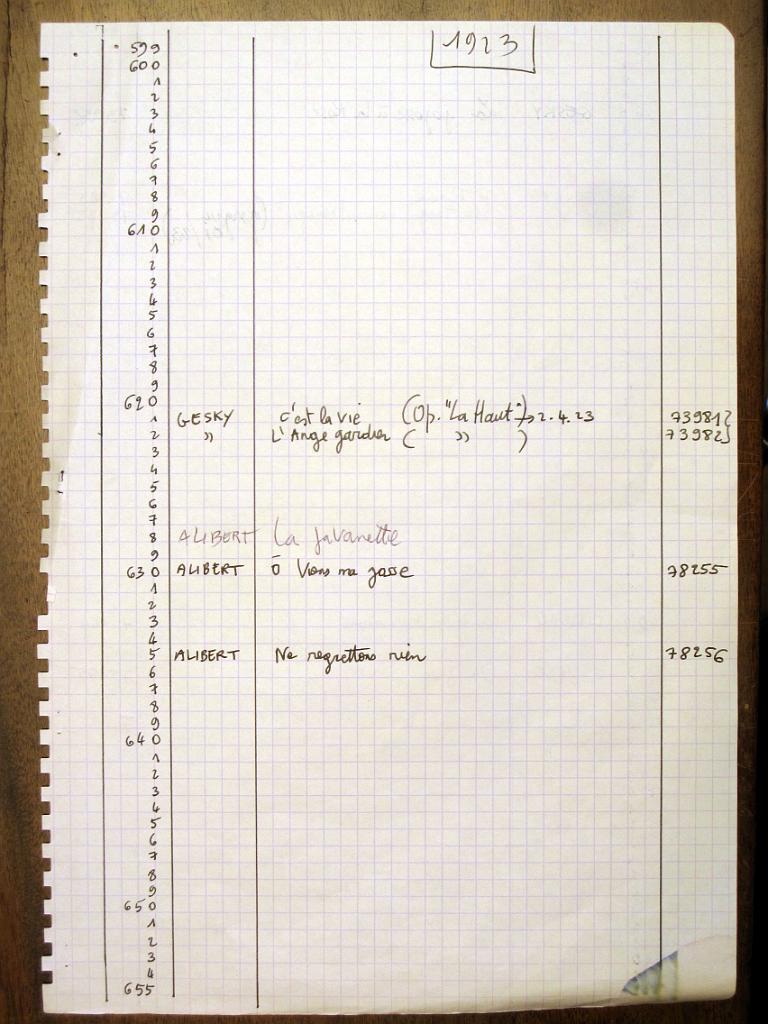 1923
599
600
1
2
3
4
5
6
7
8
9
610
1
2
3
4
5
6
7
8
9
620
1 GESKY C'est la vie (Op. "La Haut") → 2.4.23 73981
2 " L'Ange gardien ( " ) 73982
3
4
5
6
7
8 ALIBERT La Javanette
9
630 ALIBERT Ô Viens ma gosse 78255
1
2
3
4
5 ALIBERT Ne regrettons rien 78256
6
7
8
9
640
1
2
3
4
5
6
7
8
9
650
1
2
3
4
655